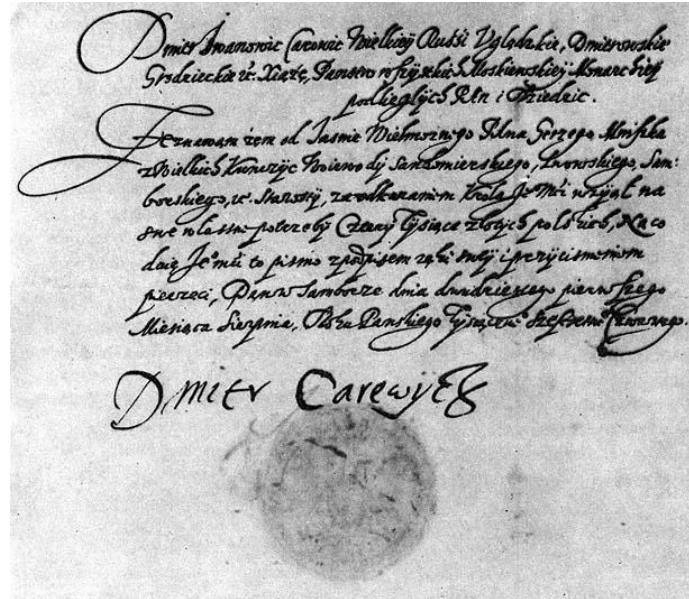 Dmitr Iwanowic Carowic Wielkiey Russi Vględzkie, Dmitrowskie
Grodzieckie &c. Xiążę, Panstw wszystkich Moskiewskiey Monarchiey
podległych Pan i Dziedzic.
Zeznawam żem od Jasnie Wielmożnego Pana Gerzego Mniszka
z Wielkich Kunczyc Woiewody Sandomierskiego, Lwowskiego, Sam-
borskiego, &c. Starosty, za Krola Je° Mści wziął na
swe własne potrzeby Cztery Tysiące złotych polskich, Na co
daię Je° Mści to pismo z podpisem ręki swey i przycisnieniem
pieczęci, Dan w Samborze dnia dwudziestego pierwszego
Miesiąca Sierpnia, Roku Panskiego Tysiącne° Szescsetne° Czwartego.
Dmitr Carewycz